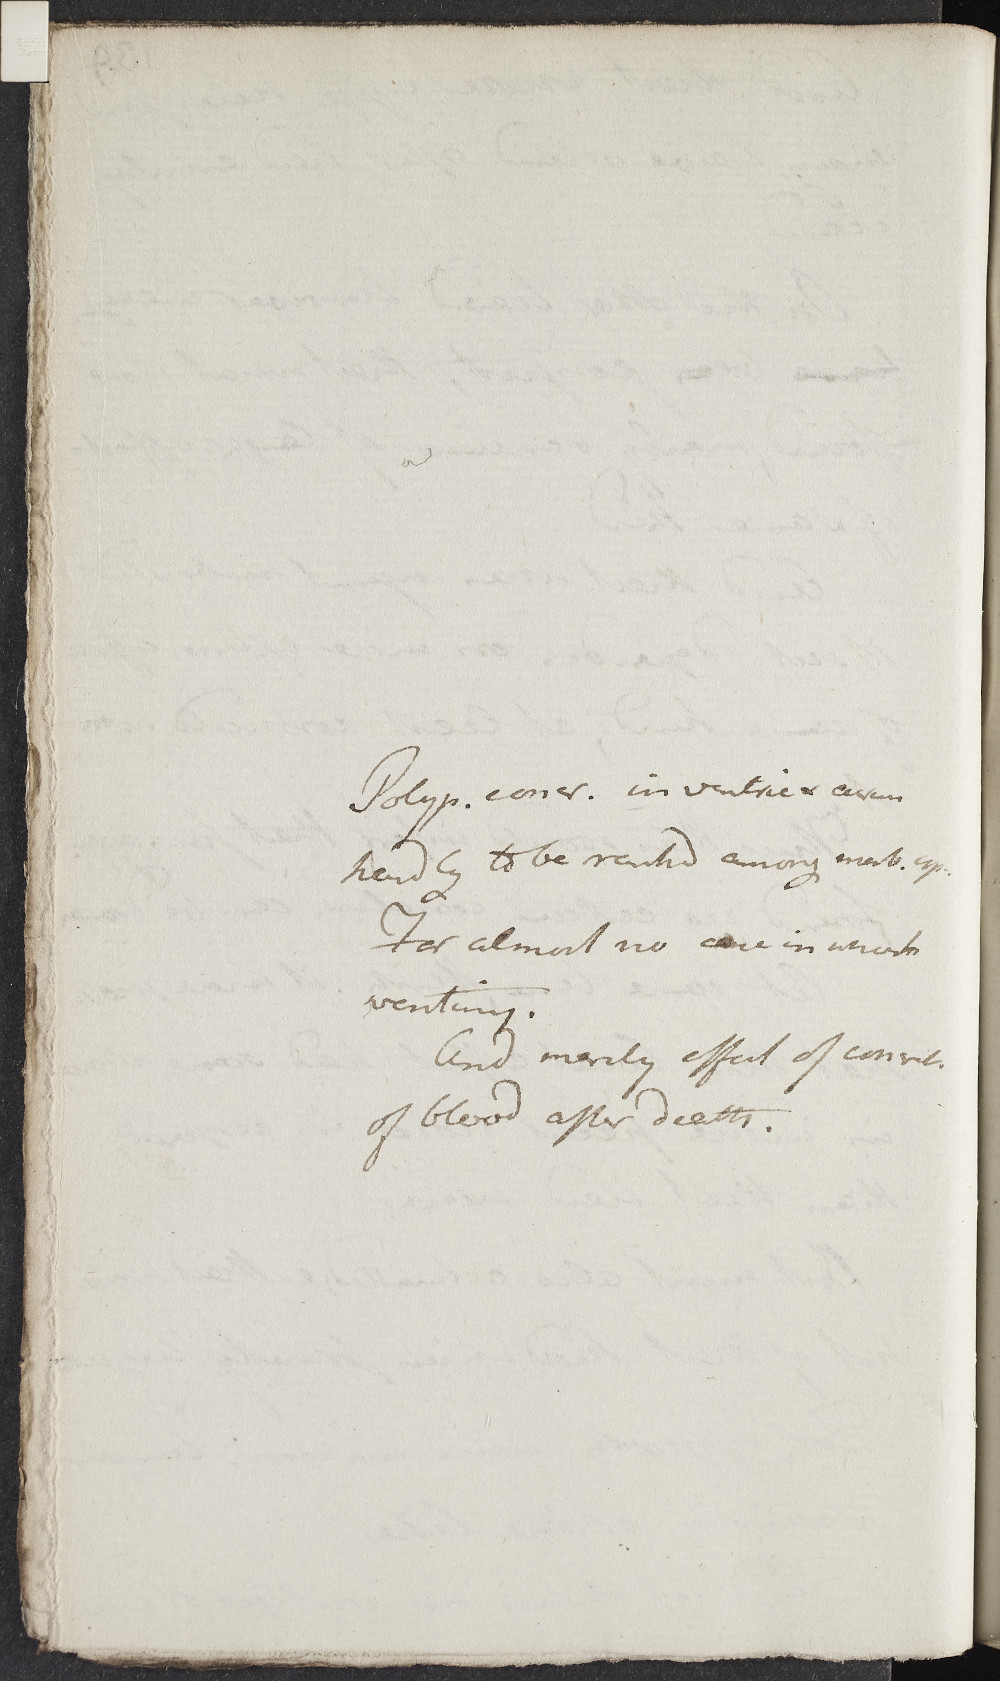 Polyp. concr. in ventric & auric
hardly to be rank'd among morb. ap.
For almost no case in which
wanting.
And merely effect of concret.
of blood after death.